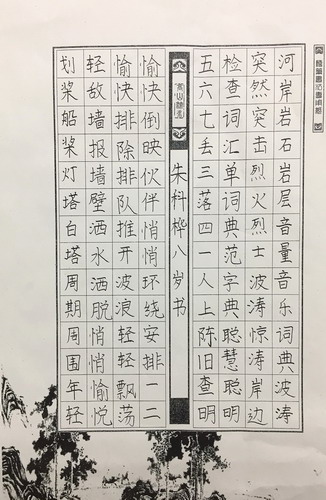 河岸岩石岩层音量音乐词典波涛
突然突击烈火烈士波涛惊涛岸边
检查词汇单词典范字典聪慧聪明
五六七丢三落四一人上陈旧查明
朱科桦八岁书
愉快倒映伙伴悄悄环绕安排一二
愉快排除排队推开波浪轻轻飘荡
轻敌墙报墙壁洒水洒脱悄悄愉悦
划桨船桨灯塔白塔周期周围年轻